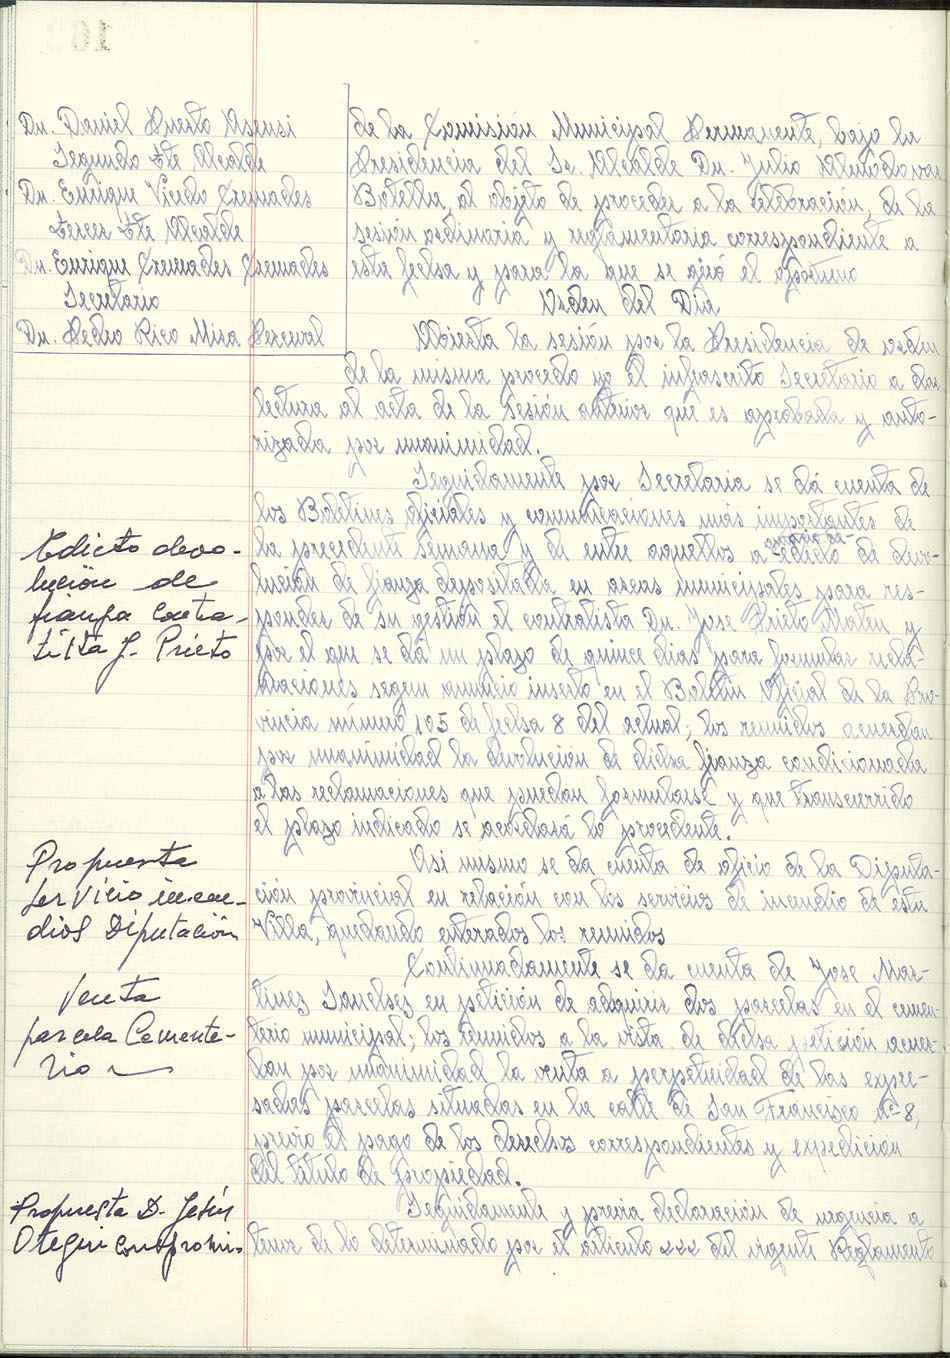 Dn. Daniel Puerto Asensi
Segundo Tte Alcalde
Dn. Enrique Vicedo Cremades
Tercer Tte Alcalde
Dn. Enrique Cremades Cremades
Secretario
Dn. Pedro Rico Mira Perceval
de la Comisión Municipal Permanente, bajo la
Presidencia del Sr. Alcalde Dn. Julio Almodovar
Botella, al objeto de proceder a la celebración, de la
sesión ordinaria y reglamentaria correspondiente a
esta fecha y para la que se giró el oportuno
Orden del Dia
Abierta la sesión por la Presidencia de orden
de la misma procedo yo el infrascrito Secretario a dar
lectura al acta de la sesión anterior que es aprobada y auto-
rizada por unanimidad.
Seguidamente por Secretaria se dá cuenta de
los Boletines oficiales y comunicaciones más importantes de
la precedente semana y de entre aquellos a edicto de devo-
lución de fianza depositada en arcas municipales para res-
ponder de su gestión el contratista Dn. Jose Prieto Mateu y
por el que se dá un plazo de quince dias para formular recla-
maciones segun anuncio inserto en el Boletin Oficial de la Pro-
vincia número 105 de fecha 8 del actual; los reunidos acuerdan
por unanimidad la devolución de dicha fianza condicionada
a las reclamaciones que puedan formularse y que transcurrido
el plazo indicado se acordará lo procedente.
Asi mismo se da cuenta de oficio de la Diputa-
ción provincial en relación con los servicios de incendio de esta
Villa, quedando enterados los reunidos
Continuadamente se da cuenta de Jose Mar-
tinez Sanchez en petición de adquirir dos parcelas en el cemen-
terio municipal; los reunidos a la vista de dicha petición acuer-
dan por unanimidad la venta a perpetuidad de las expre-
sadas parcelas situadas en la calle de San Francisco nº 8,
previo el pago de los derechos correspondientes y expedición
del titulo de propiedad.
Seguidamente y previa declaración de urgencia a
tenor de lo determinado por el articulo 222 del vigente Reglamento
Edicto devo-
lución de
fianza contra-
tista J. Prieto
Propuesta
Servicio incen-
dios Diputación
Venta
parcela Cemente-
rio
Propuesta D. Jesús
Otegui compromi-